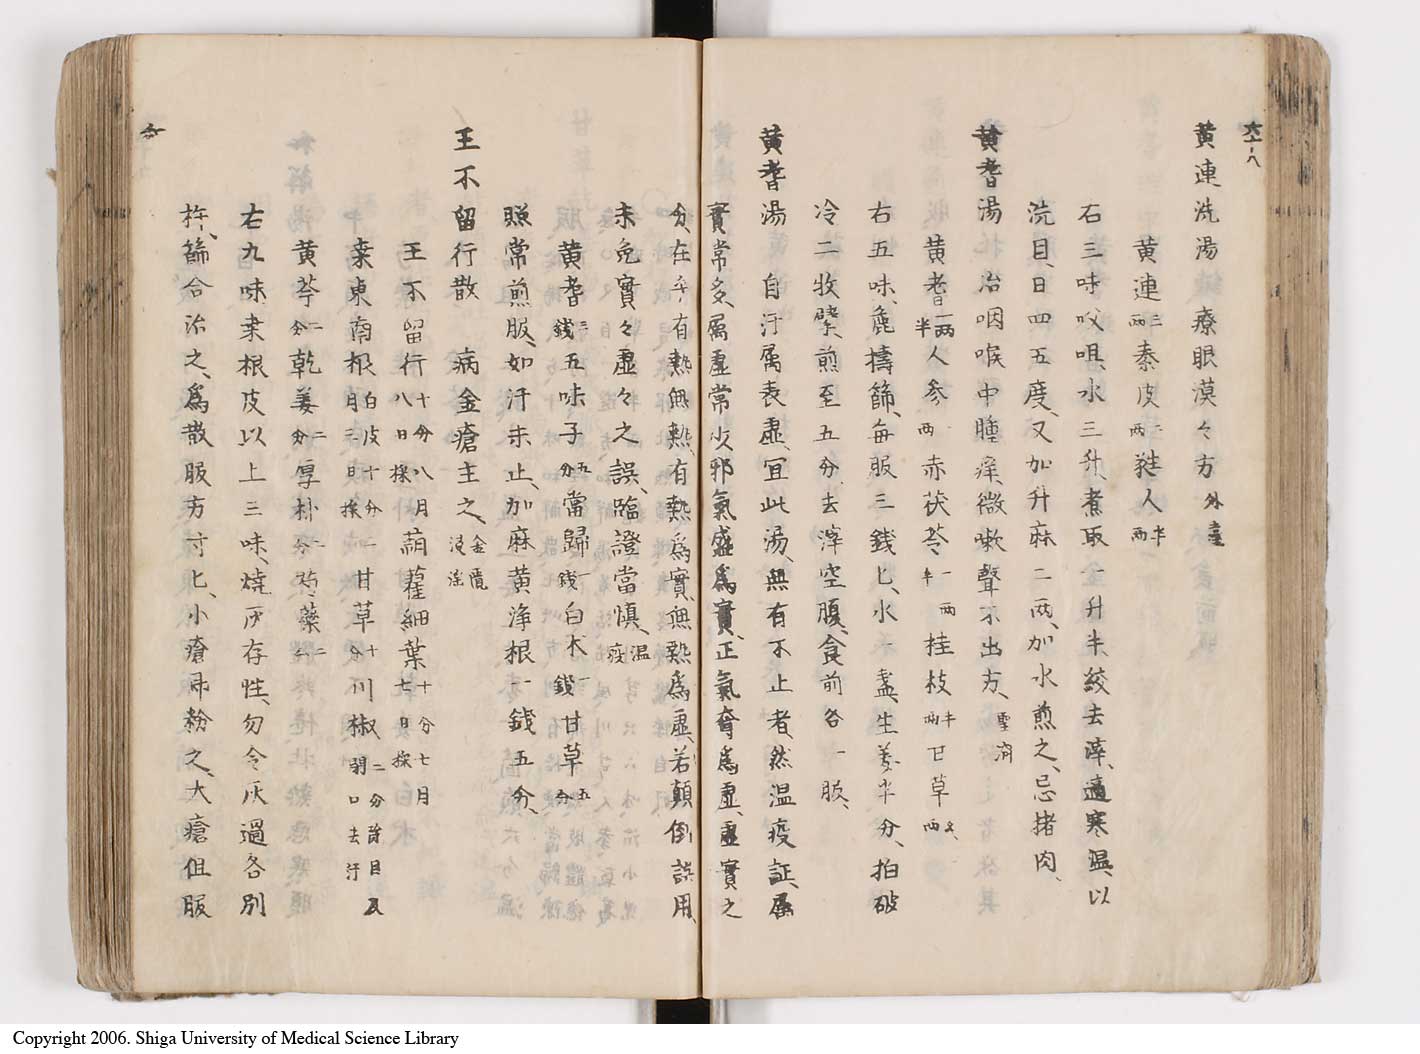 黄連洗湯 療眼漠々方 外臺
黄連二兩 秦皮二兩 蕤人半兩
右三味㕮咀水三升煮取一升半絞去滓適寒温以
洗目日四五度又加升麻二兩加水煎之忌猪肉
黄耆湯 治咽喉中腫痒微嗽聲不出方 聖濟
黄耆一兩半 人参兩 赤茯苓一兩半 桂枝半兩 甘草兩
右五味麁擣篩毎服三錢匕水一盞生姜半分拍破
冷二牧擘煎至五分去滓空腹食前各一服
黄耆湯 自汗属表虚宜此湯無有不止者然温疫証属
實常多属虚常少邪氣盛為實正氣奪為虚虚實之
分在乎有熱無熱有熱為實無熱為虚若顛倒誤用
未免實々虚々之誤臨證當慎 温疫
黄耆三錢 五味子五分 當歸一錢 白朮一錢 甘草五分
照常煎服如汗未止加麻黄浄根一錢五分
王不留行散 病金瘡主之 金匱 浸淫
王不留行十分八月八日採 蒴藋細葉十分七月七日採
桒東南根白皮十分三月三日採 甘草十分 川椒二分
黄芩二分 乾姜二分 厚朴二分 芍藥二分
右九味桒根皮以上三味燒灰存性勿令灰過各別
杵篩合治之為散服方寸匕小瘡即粉之大瘡但服